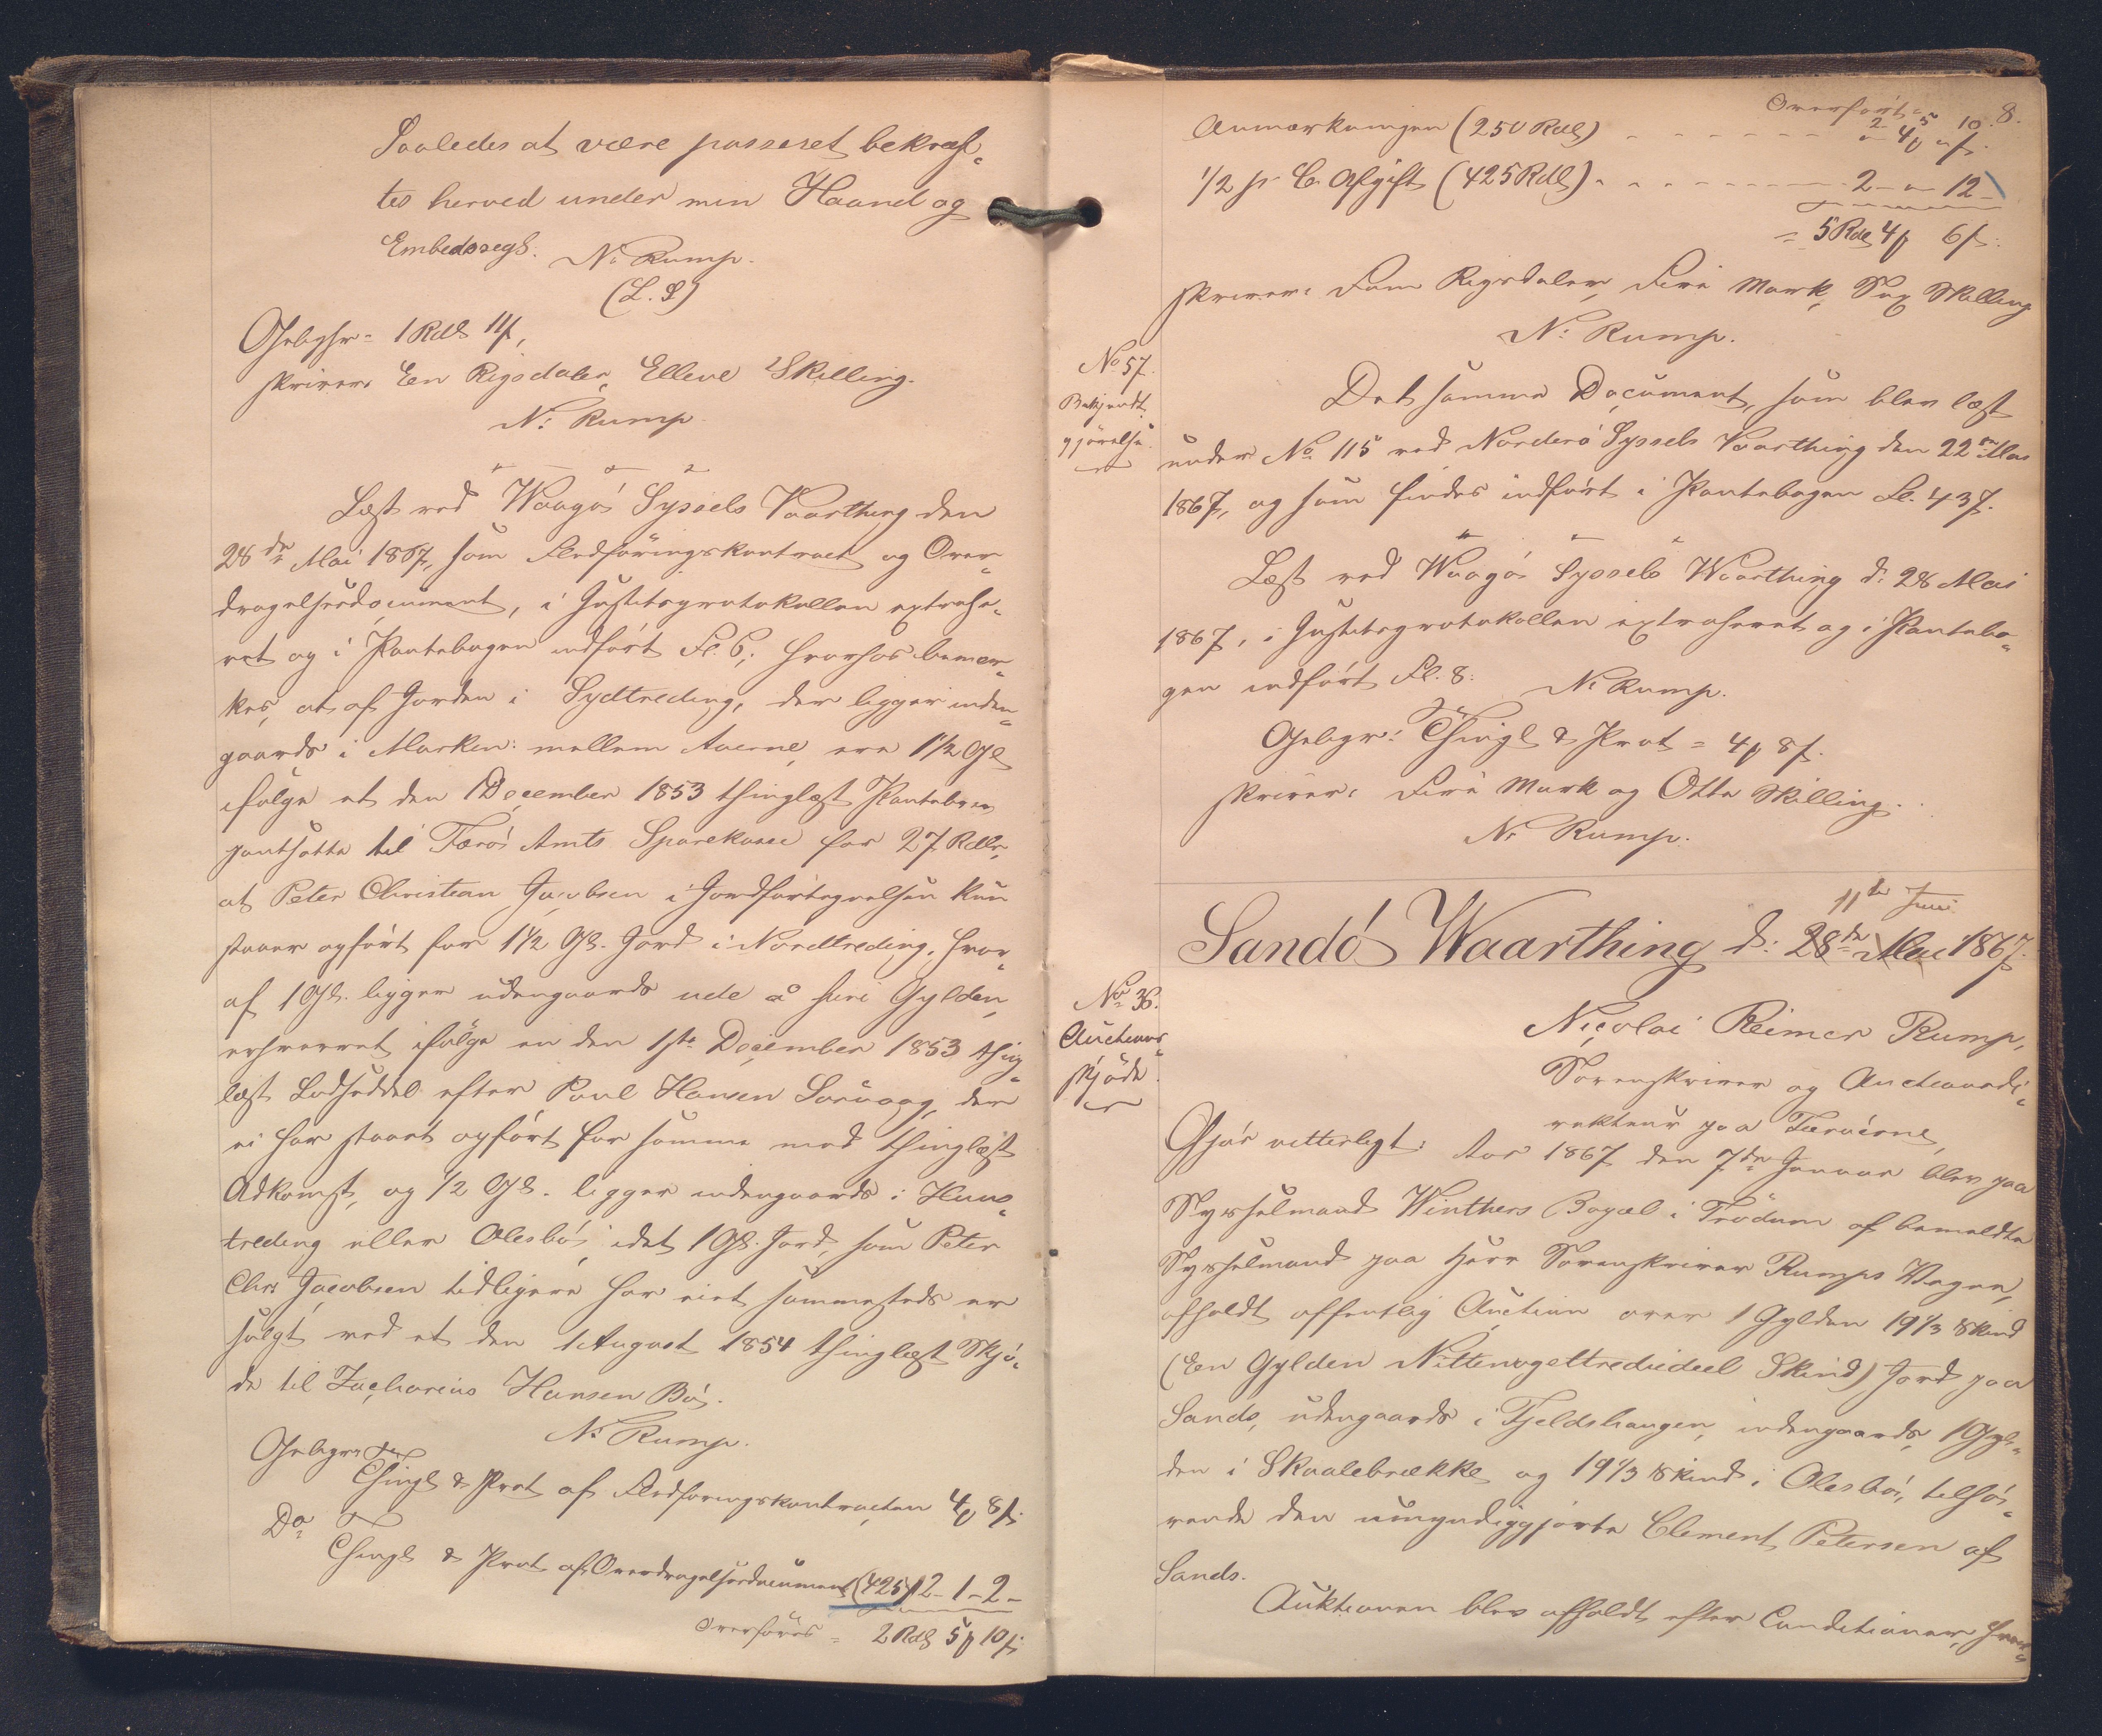 Saaledes at være passeret bekræf-
tes herved under min Haand og
Embedssegl. N: Rump.
(L. S)
Gebyhr = 1 Rdl 11 s,
skriver En Rigsdaler, Elleve Skilling.
N: Rump
Læst ved Waagø Syssels Vaarthing den
28de Mai 1867, som Aftrædelseskontract og Over-
dragelsesdocument, i Justitsprotokollen extrahe-
ret og i Pantebogen indført Fl. 6; hvorhos bemær-
kes, at af Jorden i Sydtreding, der ligger inden-
gaards i Marken: mellem Aaerne, ere 1 1/2 Gl
ifølge et den 1 December 1853 thinglæst Pantebrev
pantsatte til Færø Amts Sparekasse for 27 Rdlr,
at Peter Christian Jacobsen i Jordfortegnelsen kun
staaer opført for 1 1/2 Gl. Jord i Nordtreding, hvor-
af 1 Gl. ligger udengaards ude å Gylden,
erhvervet ifølge en den 1ste December 1853 thing-
læst Lodseddel efter Poul Hansen Sørvaag, der
ei har staaet opført for samme med thinglæst
Adkomst, og 1/2 Gl. ligger indengaards i Huus-
treding eller Olesbø, idet 1 Gl. Jord, som Peter
Chr: Jacobsen tidligere har eiet sammesteds er
solgt ved et den 1 August 1854 thinglæst Skjø-
de til Zacharias Hansen Bø.
N: Rump.
Gebyr:
Thingl & Prot af Aftrædelseskontracten 4 m 8 s
Do
Thingl & Prot af Overdragelsesdocument (425) 2 - 1 - 2 -
Overføres = 2 Rdl 5 m 10 s
8.
Overført = 2 5 10
Anmærkningen (250 Rdl) - - - - - " 4 m " s
1/2 pr C. Afgift (425 Rdl) - - - - - 2 - " - 12 -
= 5 Rdl 4 m 6 s.
skriver: Fem Rigsdaler, Fire Mark, Sex Skilling
N: Rump.
No 57.
Bekjendt-
gjørelse.
Det samme Document, som blev læst
under No 115 ved Norderø Syssels Vaarthing den 22de Mai
1867, og som findes indført i Pantebogen Fl. 437.
Læst ved Waagø Syssels Waarthing d: 28 Mai
1867, i Justitsprotokollen extraheret og i Pantebo-
gen indført Fl. 8. N: Rump.
Gebyr: Thingl & Prot = 4 m 8 s.
skriver: Fire Mark og Otte Skilling.
N: Rump.
11te Juni
Sandø Waarthing d: 28de Mai 1867.
No 36.
Auctions-
skjøde.
Nicolai Reimer Rump,
Sorenskriver og Auctionsdi-
rekteur paa Færøerne,
Gjør vitterligt: Aar 1867 den 7de Januar blev paa
Sysselmand Winthers Bopæl i Trødum af bemeldte
Sysselmand paa Herr Sorenskriver Rumps Vegne,
afholdt offentlig Auction over 1 Gylden 19 1/3 Skind
(Een Gylden Nittenogettrediedeel Skind) Jord paa
Sands, udengaards i Fjeldshaugen, indengaards, 1 Gyl-
den i Skaalebrekke og 19 1/3 Skind i Olesbø, tilhø-
rende den umyndiggjorte Clement Petersen af
Sands.
Auktionen blev afholdt efter Conditioner, hvor-